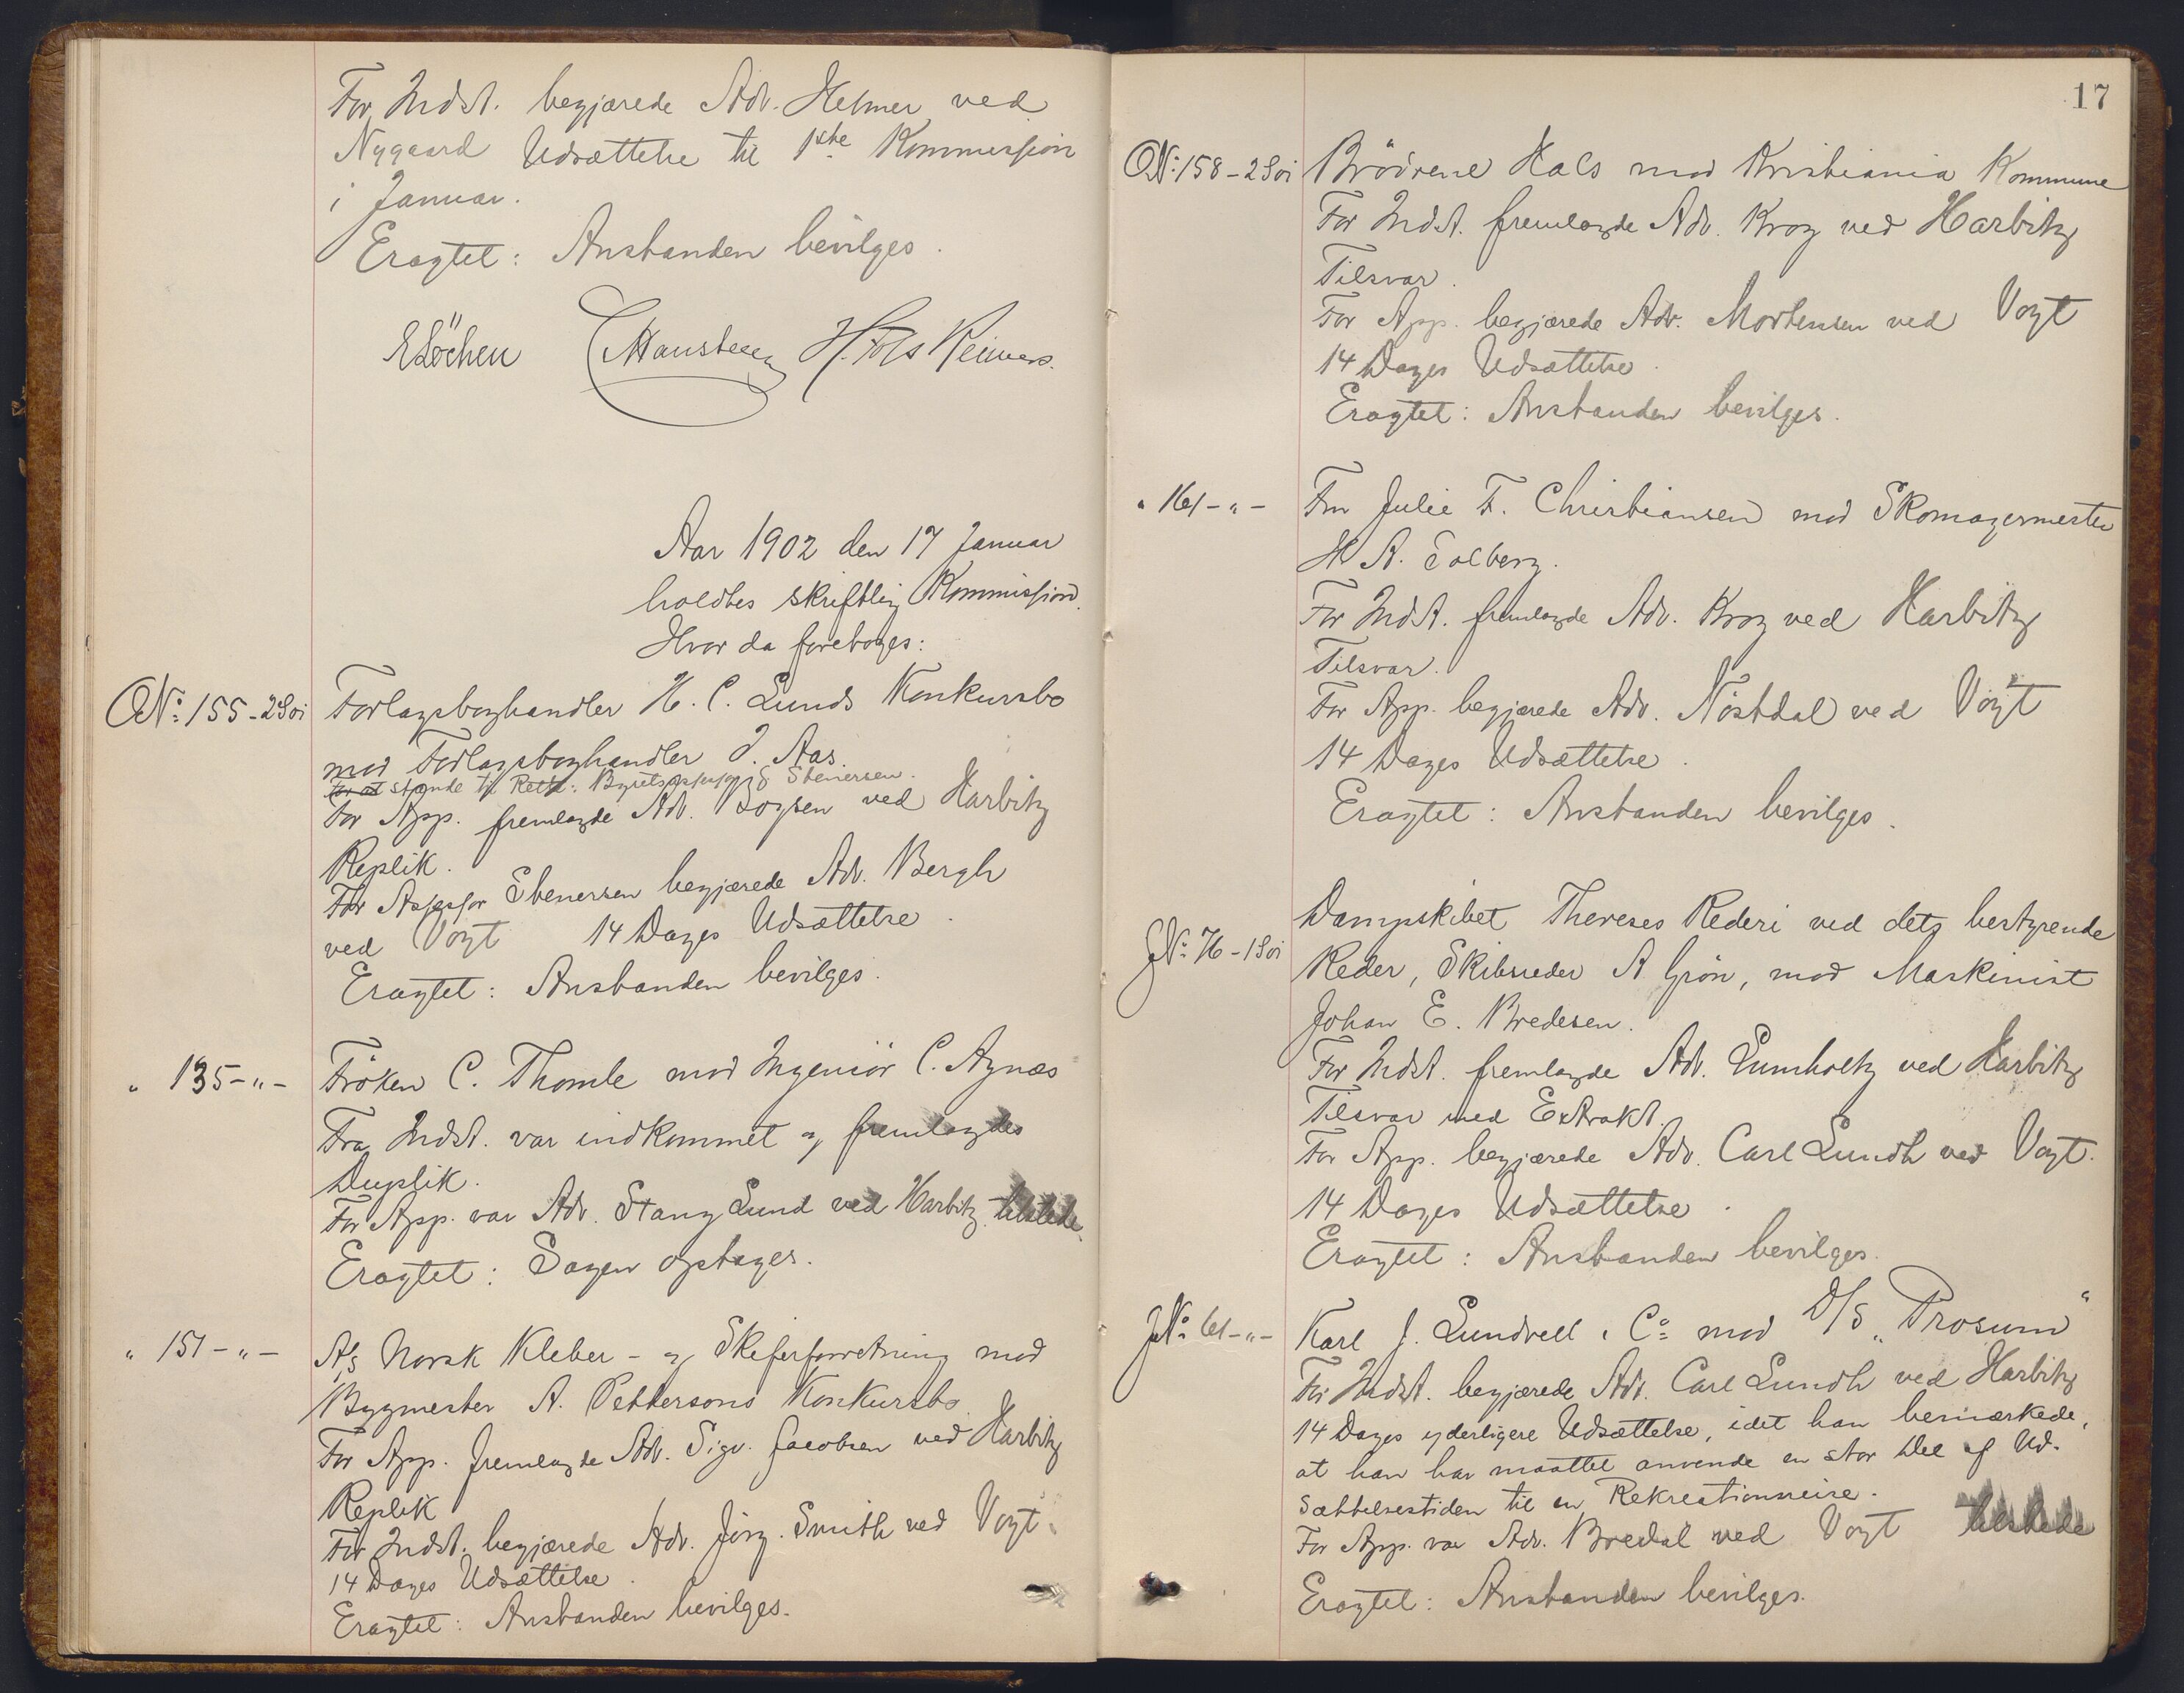 For Indst. begjærede Adv. Helmer ved
Nygaard Udsættelse til 1ste Kommission
i Januar.
Eragtet: Anstanden bevilges.
E Löchen H. Fols Reimers.
Aar 1902 den 17 Januar
holdtes skriftlig Kommission.
Hvor da foretoges:
No: 155 - 2 Soi Forlagsboghandler H. C. Lunds Konkursbo
mod Forlagsboghandler J. Aas.
For at stande til Rette: Byretsassessor Stenersen.
For App. fremlagde Adv. ved Harbitz
Replik.
For Assessor Stenersen begjærede Adv. Bergh
ved Vogt 14 Dages Udsættelse.
Eragtet: Anstanden bevilges.
„ 135 - „ - Fröken C. Thomle mod Ingeniör C. Agnæs
Fra Indst. var indkommet og fremlagdes
Duplik.
For App. var Adv. Stang Lund ved Harbitz tilstede.
Eragtet: Sagen optages.
„ 151 - „ - A/S Norsk Kleber- og Skiferforretning mod
Bygmester A. Pettersons Konkursbo.
For App. fremlagde Adv. Sigv. Jacobsen ved Harbitz
Replik
For Indst. begjærede Adv. Jörg. Smith ved Vogt.
14 Dages Udsættelse.
Eragtet: Anstanden bevilges.
17
No: 158 - 2 Soi Brödrene Hals mod Kristiania Kommune
For Indst. fremlagde Adv. Krog ved Harbitz
Tilsvar.
For App. begjærede Adv. Mortensen ved Vogt
14 Dages Udsættelse.
Eragtet: Anstanden bevilges.
„ 161 - „ - Fru Julie F. Christiansen mod Skomagermester
H A. Solberg.
For Indst. fremlagde Adv. Krog ved Harbitz
Tilsvar.
For App. begjærede Adv. Nöstdal ved Vogt
14 Dages Udsættelse.
Eragtet: Anstanden bevilges.
No: 76 - 1 Soi Dampskibet Thereses Rederi ved dets bestyrende
Reder, Skibsreder A Grön, mod Maskinist
Johan E. Bredesen.
For Indst. fremlagde Adv. Lumholtz ved Harbitz
Tilsvar med Extrakt.
For App. begjærede Adv. Carl Lundh ved Vogt.
14 Dages Udsættelse.
Eragtet: Anstanden bevilges.
No: 61 - „ - Karl J. Lundvell & Co: mod D/S „Prosum“
For Indst. begjærede Adv. Carl Lundh ved Harbitz
14 Dages yderligere Udsættelse, idet han bemærkede,
at han har maattet anvende en stor Del af Ud-
sættelsestiden til en Rekreationsreise.
For App. var Adv. Bredal ved Vogt tilstede
Eragtet: Anstanden bevilges.